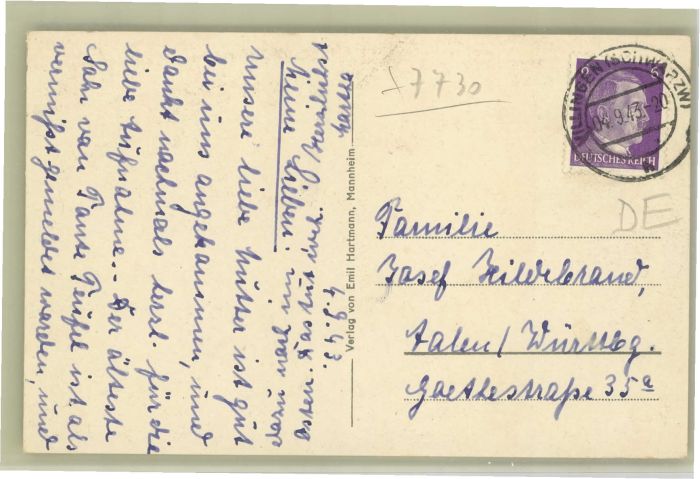 4.9.43.
Meine Lieben!
Unsere liebe Mutter ist gut
bei uns angekommen, und
dankt nochmals herzl. für die
liebe Aufnahme. - Der älteste
Sohn von Tante Teufel ist als
vermißt gemeldet worden, und
Verlag von Emil Hartmann, Mannheim
+7730
VILLINGEN (SCHWARZW)
04.9.43.-20
DEUTSCHES REICH
6
DE
Familie
Josef Hildebrand,
Aalen/Württbg.
Goethestraße 35a